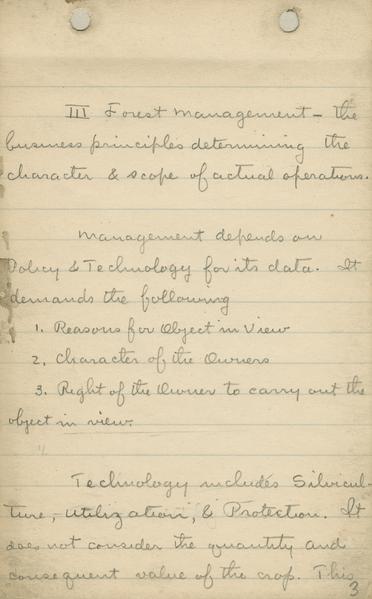 III Forest Management - the
business principles determining the
character & scope of actual operations.
Management depends on
Policy & Technology for its data. It
demands the following
1. Reasons for Object in View
2. Character of the Owners
3. Right of the Owner to carry out the
object in view.
Technology includes Silvicul-
ture, utilization, & Protection. It
does not consider the quantity and
consequent value of the crop. This
3